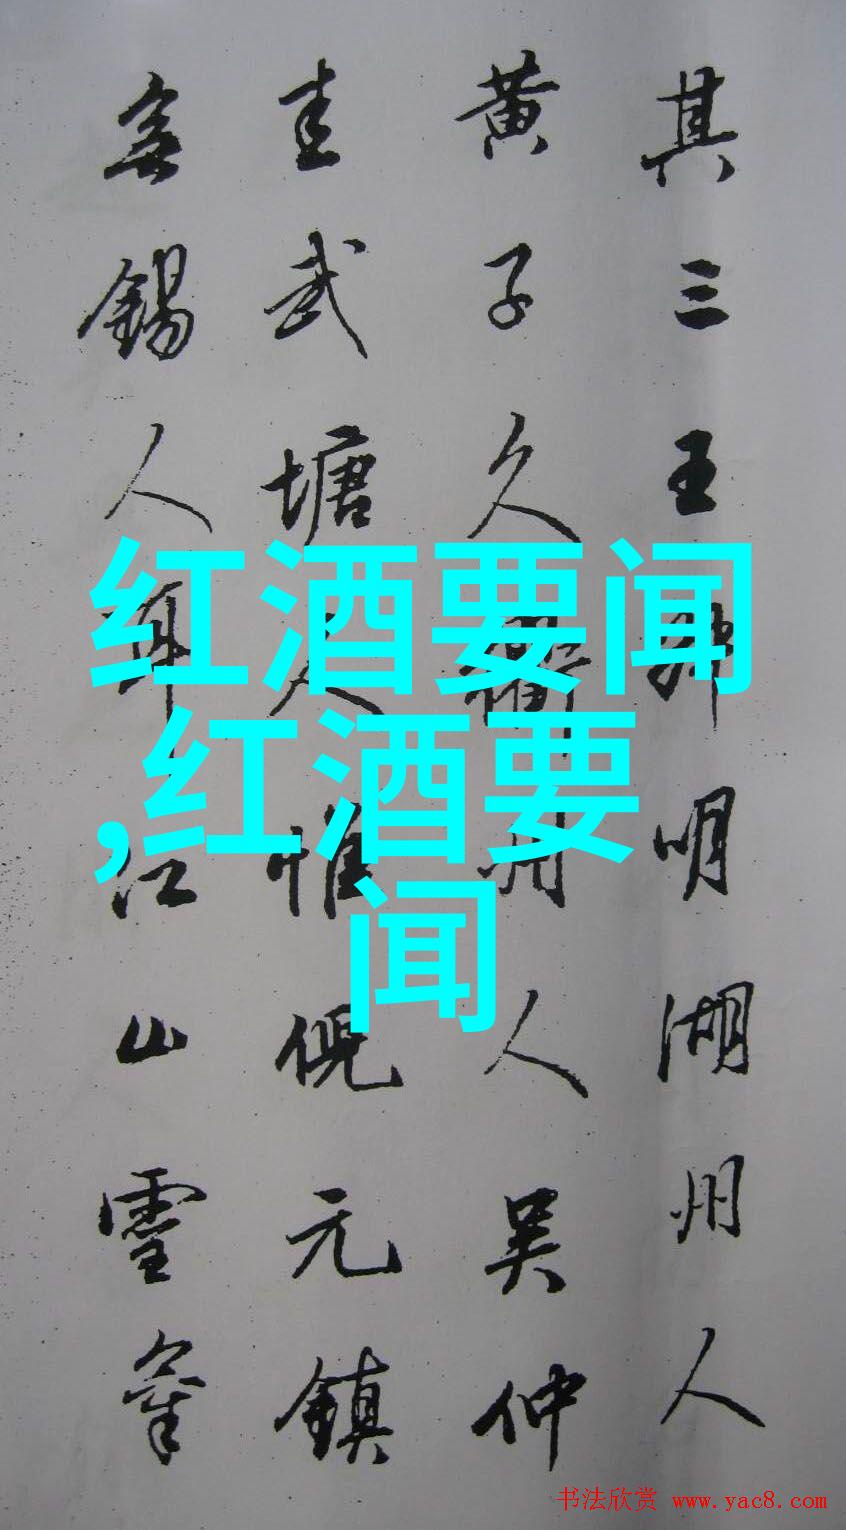 其三王叔明湖州人
黄子久衢州人吴仲
圭武塘人惟倪元鎮
無錫人耳江山靈氣
红酒要闻
,红酒要
闻
书法欣赏 www.yac8.com